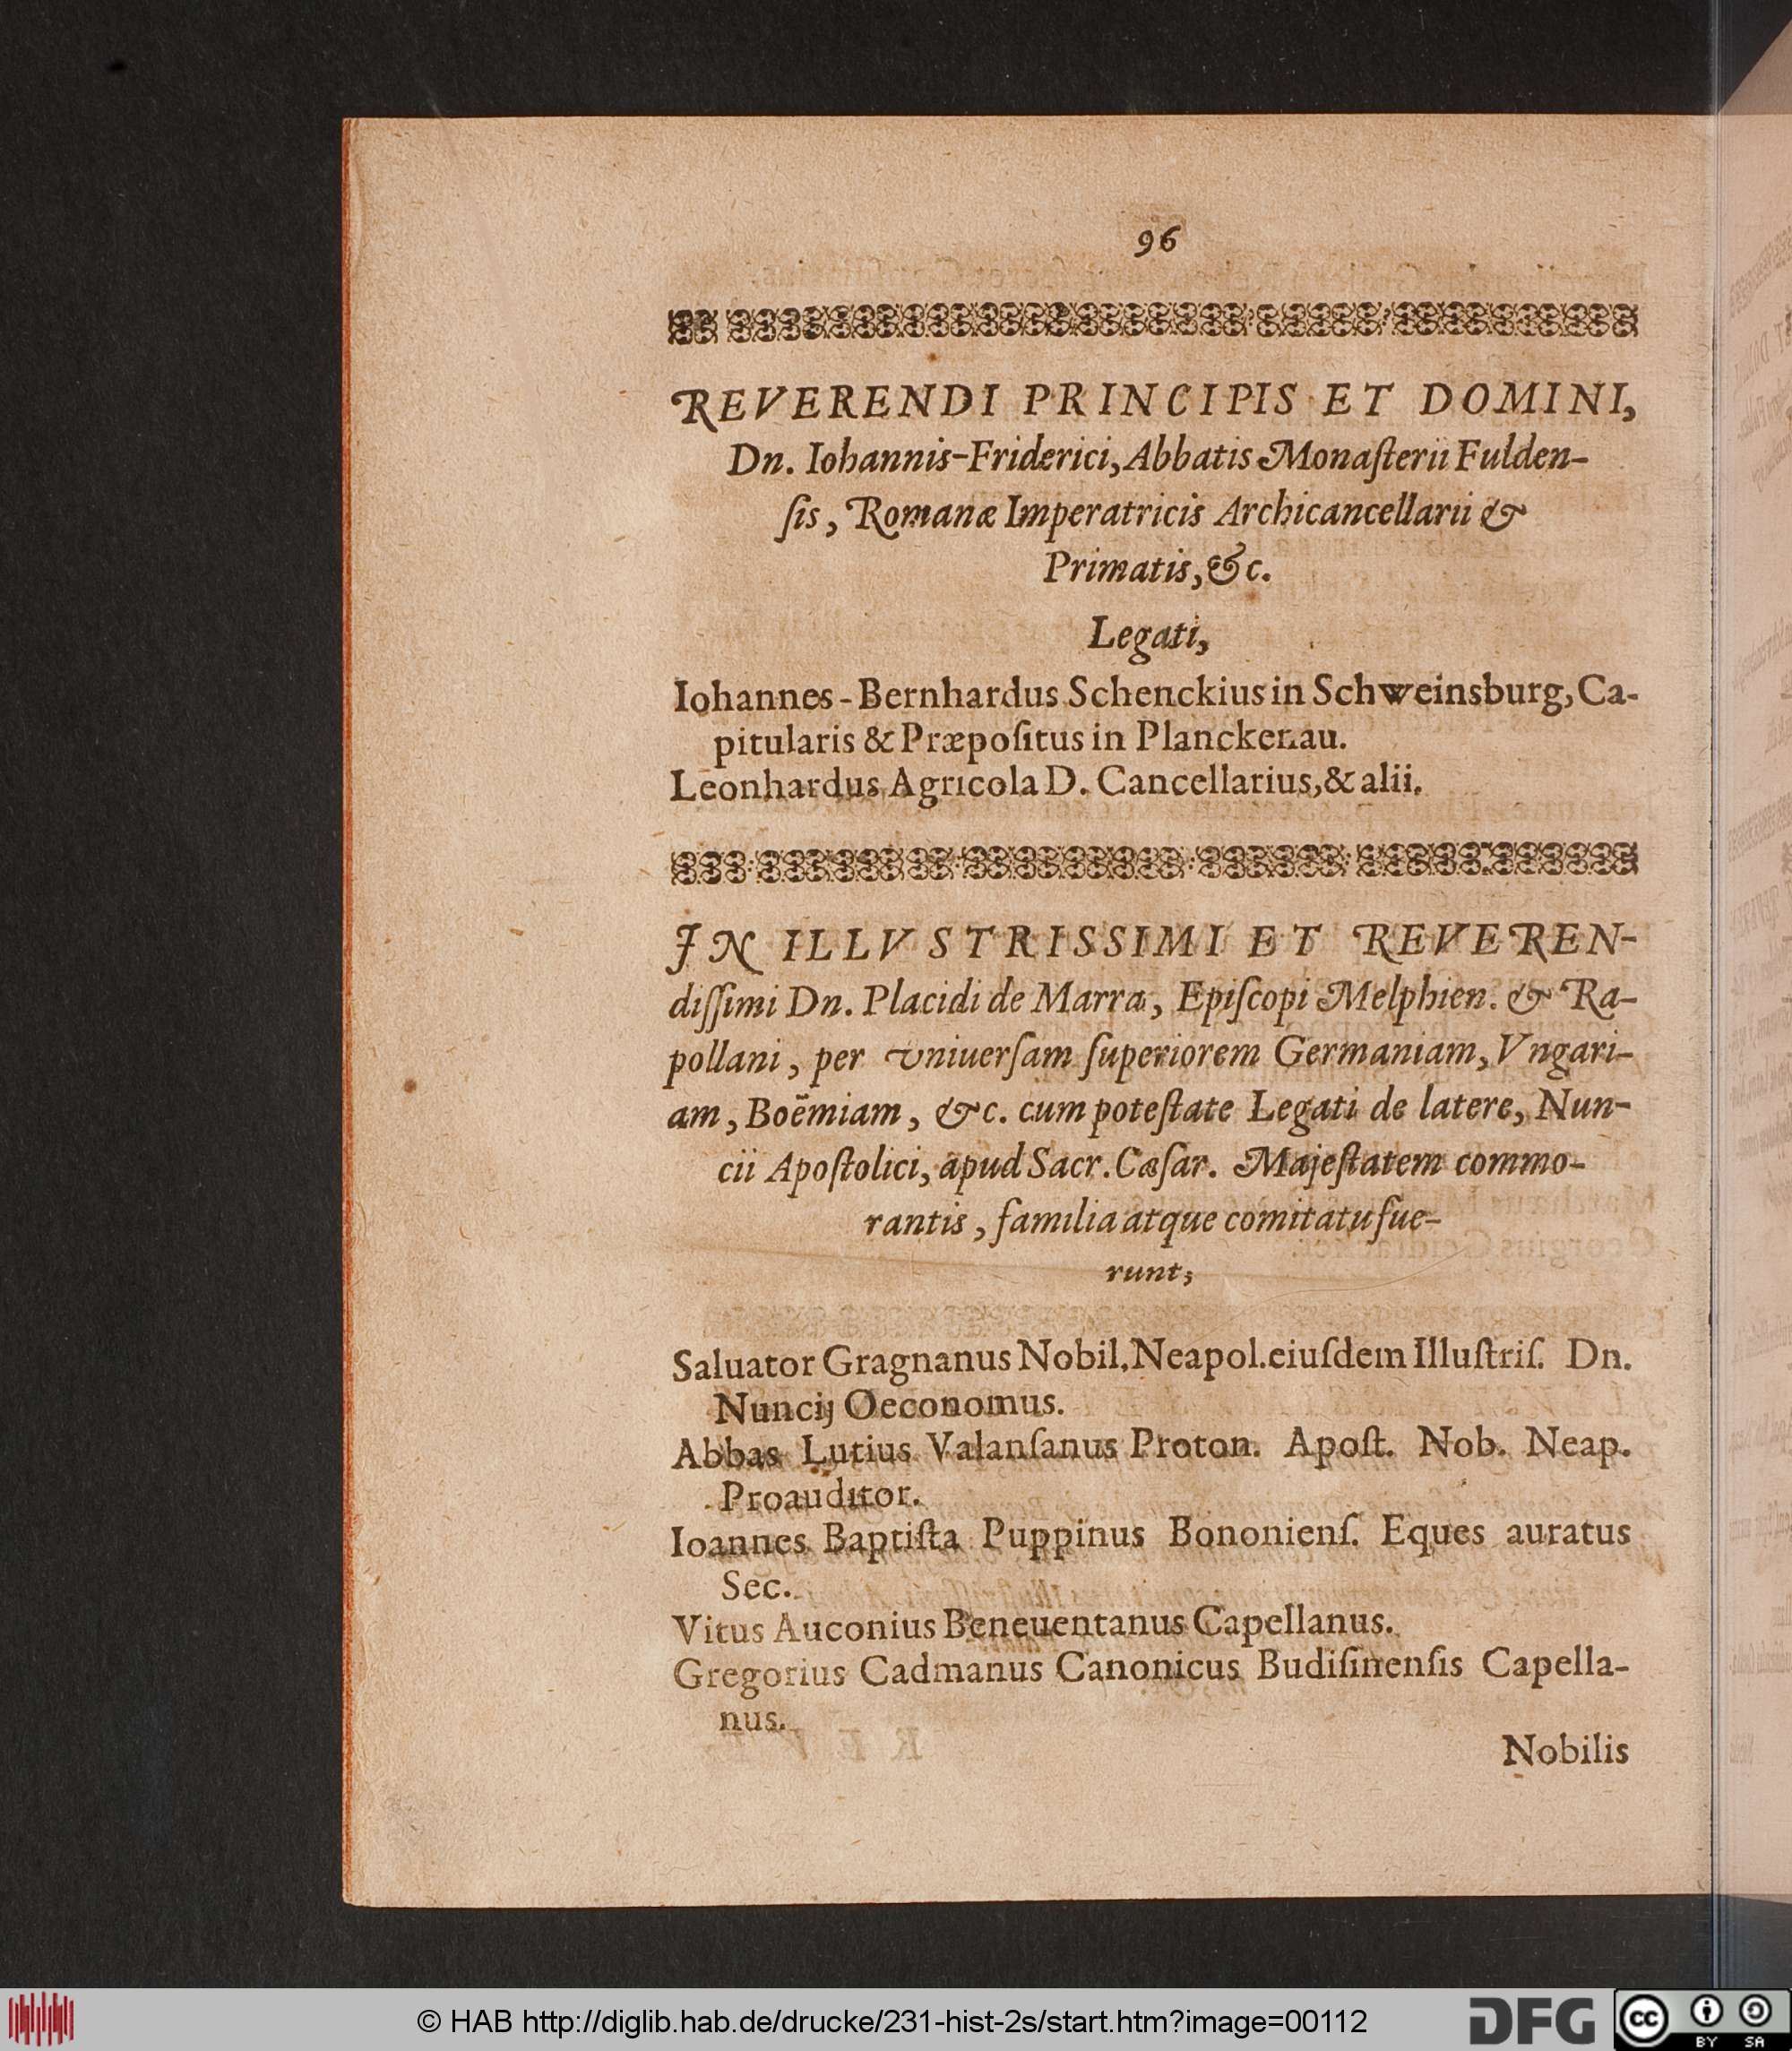 96
REVERENDI PRINCIPIS ET DOMINI,
Dn. Iohannis-Friderici, Abbatis Monaſterii Fulden-
ſis, Romanæ Imperatricis Archicancellarii &
Primatis, &c.
Legati,
Iohannes-Bernhardus Schenckius in Schweinsburg, Ca-
pitularis & Præpoſitus in Planckenau.
Leonhardus Agricola D. Cancellarius, & alii.
IN ILLVSTRISSIMI ET REVEREN-
diſſimi Dn. Placidi de Marra, Epiſcopi Melphien. & Ra-
pollani, per vniuerſam ſuperiorem Germaniam, Vngari-
am, Boëmiam, &c. cum poteſtate Legati de latere, Nun-
cii Apoſtolici, apud Sacr. Cæſar. Majeſtatem commo-
rantis, familia atque comitatu fue-
runt;
Saluator Gragnanus Nobil. Neapol. eiuſdem Illuſtriſ. Dn.
Nuncij Oeconomus.
Abbas Lutius Valanſanus Proton. Apoſt. Nob. Neap.
Proauditor.
Ioannes Baptiſta Puppinus Bononienſ. Eques auratus
Sec.
Vitus Auconius Beneuentanus Capellanus.
Gregorius Cadmanus Canonicus Budiſinenſis Capella-
nus.
Nobilis
© HAB http://diglib.hab.de/drucke/231-hist-2s/start.htm?image=00112
DFG
cc BY SA